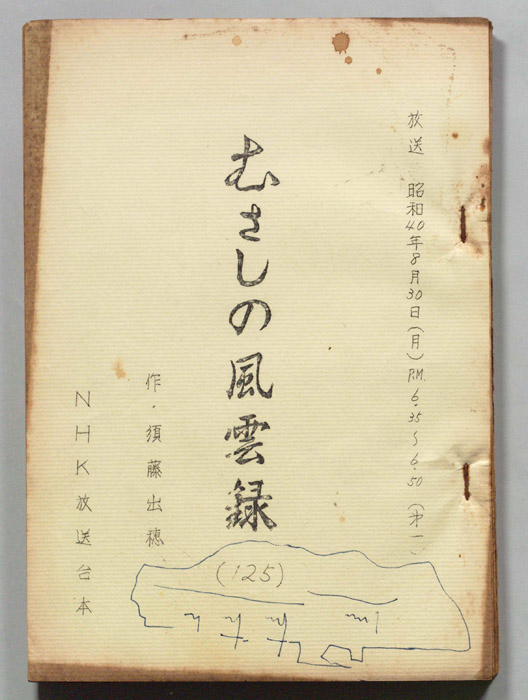 放送 昭和40年8月30日(月)P.M. 6.35〜6.50(第一)
むさしの風雲録
作・須藤出穂
NHK放送台本
(125)